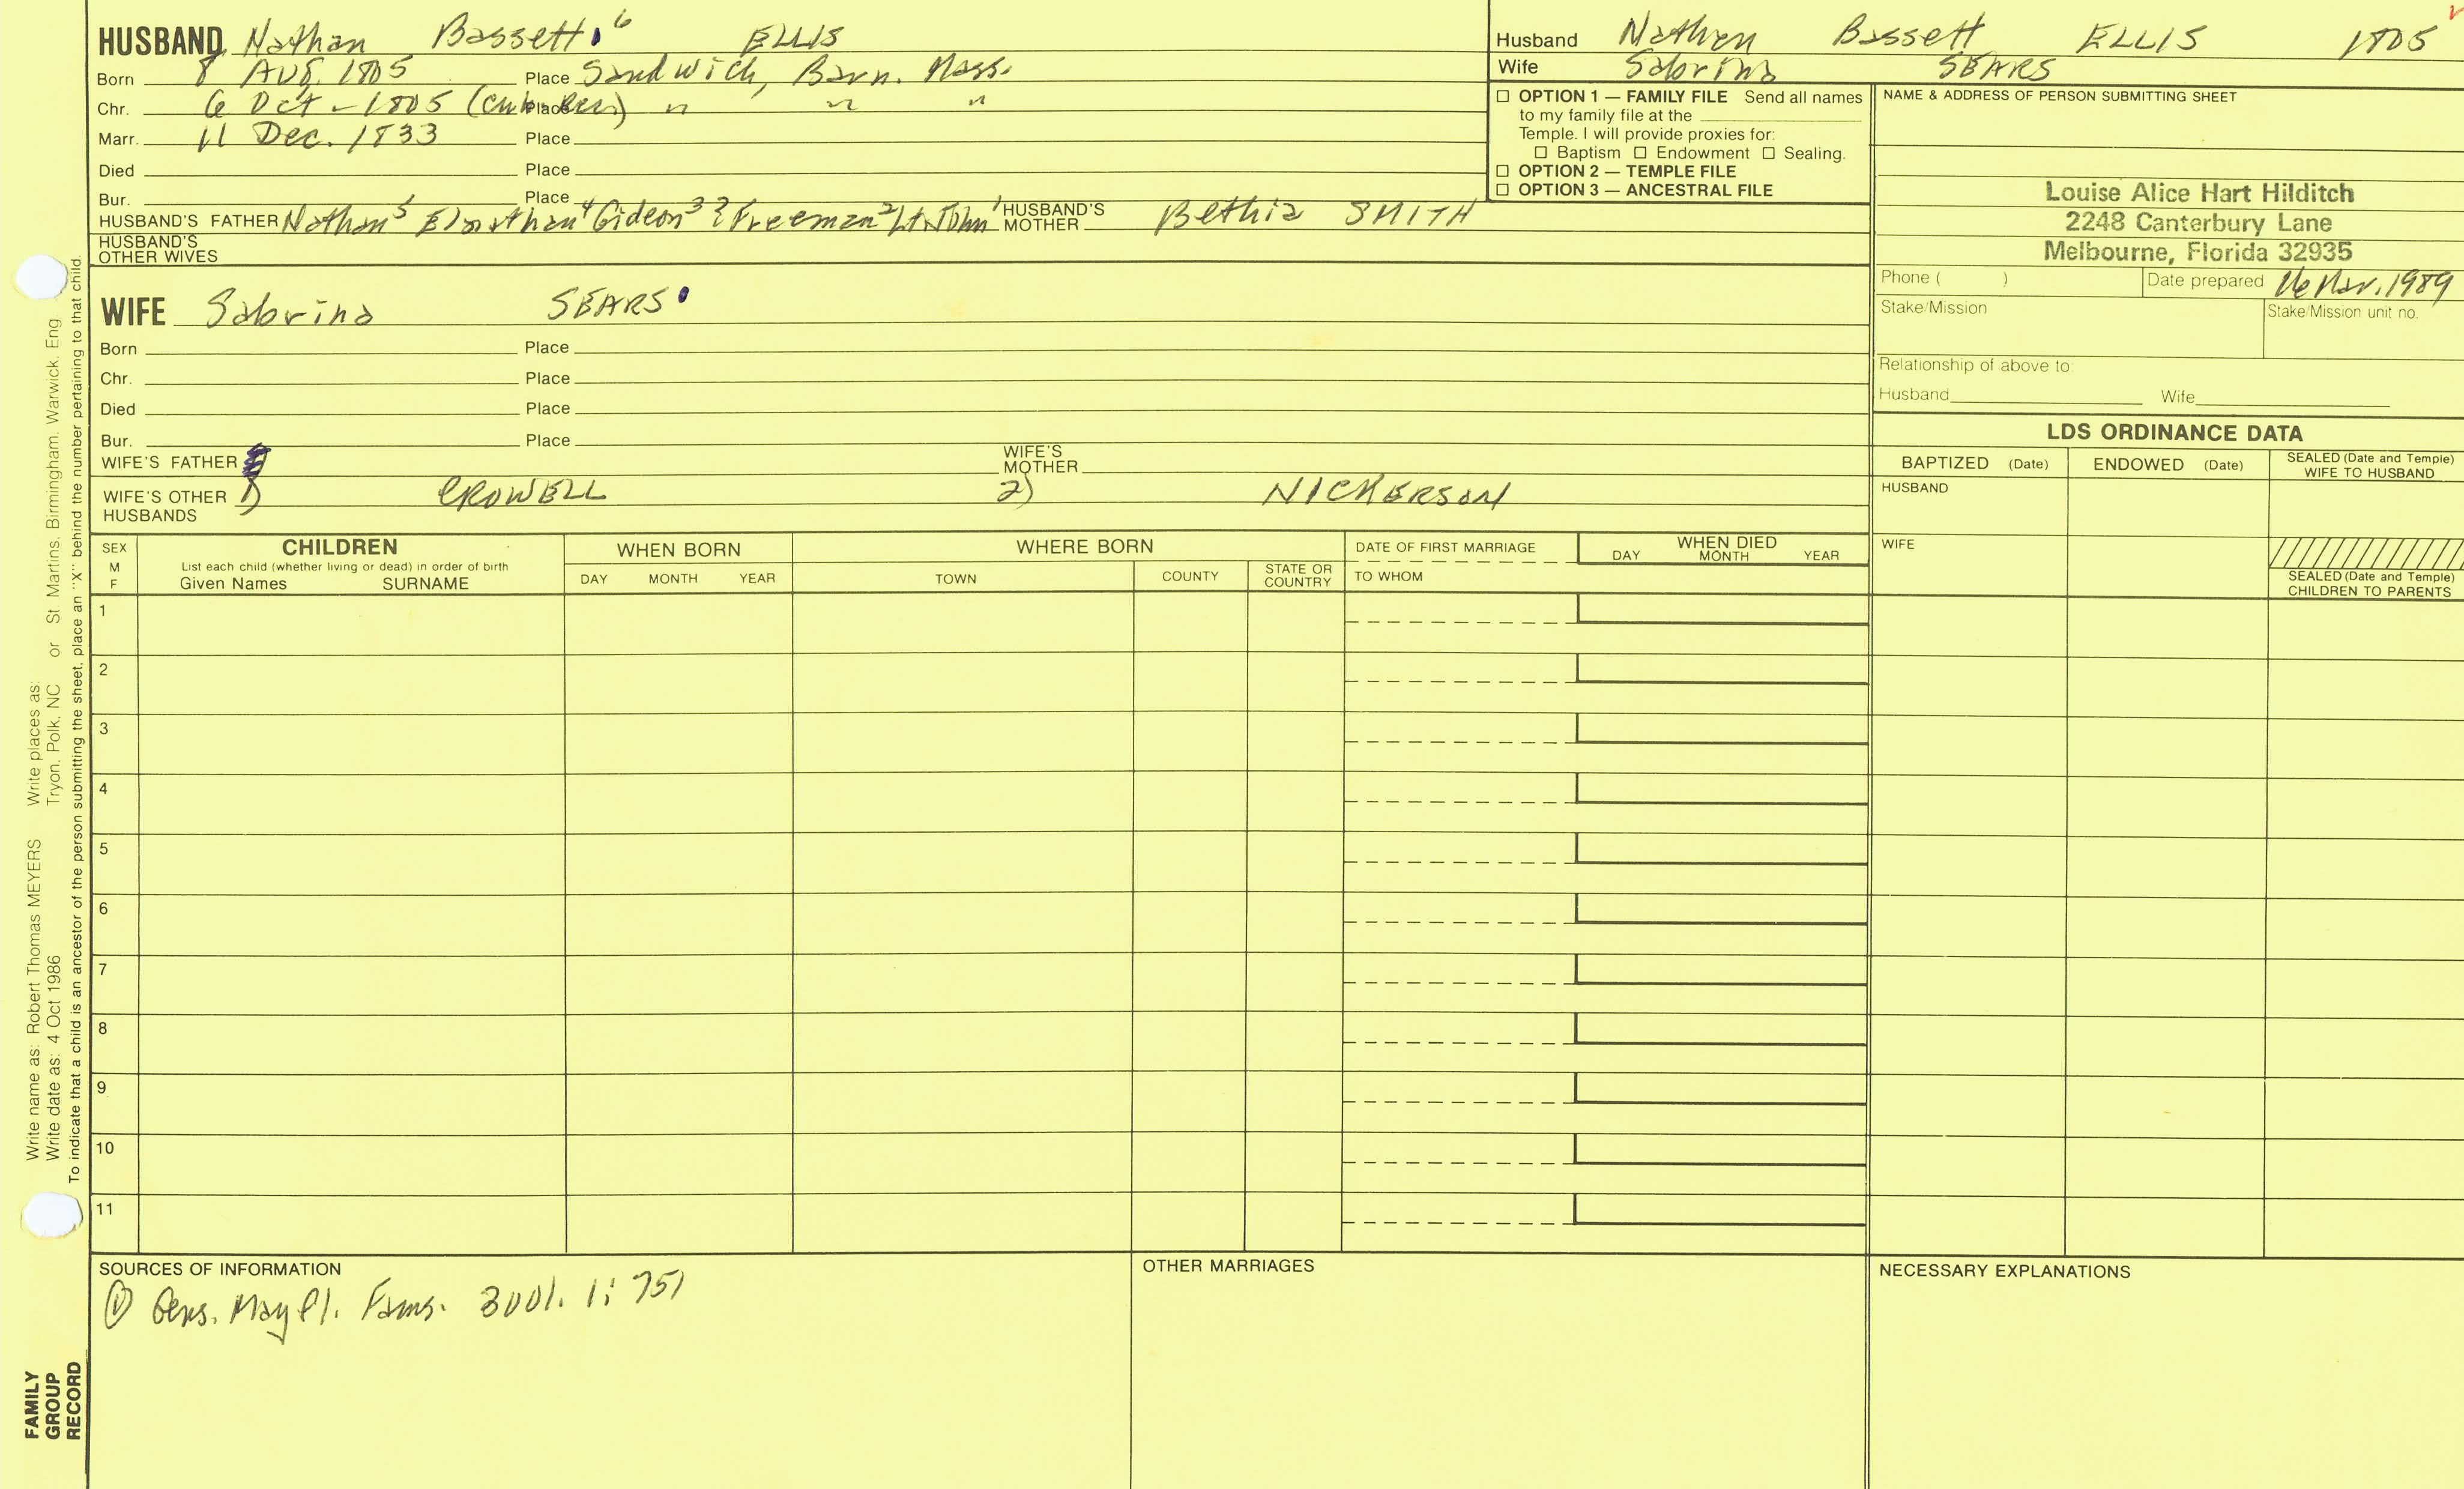 HUSBAND Nathan Bassett 6 ELLIS
Born 8 AUG. 1805 Place Sandwich, Barn. Mass.
Chr. 6 Oct - 1805 Place " " "
Marr. 11 Dec. 1833 Place
Died Place
Bur. Place
HUSBAND'S FATHER Nathan 5 Elnathan 4 Gideon 3 ? Freeman 2 Lt. John 1 HUSBAND'S MOTHER Bethia SMITH
HUSBAND'S OTHER WIVES
WIFE Sabrina SEARS
Born Place
Chr. Place
Died Place
Bur. Place
WIFE'S FATHER WIFE'S MOTHER
WIFE'S OTHER HUSBANDS 1) CROWELL 2) NICKERSON
Husband Nathan Bassett ELLIS 1805
Wife Sabrina SEARS
☐ OPTION 1 — FAMILY FILE Send all names
to my family file at the
Temple. I will provide proxies for:
☐ Baptism ☐ Endowment ☐ Sealing.
☐ OPTION 2 — TEMPLE FILE
☐ OPTION 3 — ANCESTRAL FILE
NAME & ADDRESS OF PERSON SUBMITTING SHEET
Louise Alice Hart Hilditch
2248 Canterbury Lane
Melbourne, Florida 32935
Phone ( ) Date prepared 16 Mar. 1989
Stake/Mission Stake/Mission unit no.
Relationship of above to:
Husband Wife
LDS ORDINANCE DATA
BAPTIZED (Date) ENDOWED (Date) SEALED (Date and Temple) WIFE TO HUSBAND
HUSBAND
WIFE
SEALED (Date and Temple)
CHILDREN TO PARENTS
SEX M F CHILDREN List each child (whether living or dead) in order of birth Given Names SURNAME
WHEN BORN DAY MONTH YEAR
WHERE BORN TOWN COUNTY STATE OR COUNTRY
DATE OF FIRST MARRIAGE TO WHOM
WHEN DIED DAY MONTH YEAR
1
2
3
4
5
6
7
8
9
10
11
SOURCES OF INFORMATION
① Gens. Mayfl. Fams. 3 vol. 1: 751
OTHER MARRIAGES
NECESSARY EXPLANATIONS
Write name as: Robert Thomas MEYERS Write places as:
Write date as: 4 Oct 1986 Tryon, Polk, NC or St. Martins, Birmingham, Warwick, Eng
To indicate that a child is an ancestor of the person submitting the sheet, place an "X" behind the number pertaining to that child.
FAMILY
GROUP
RECORD